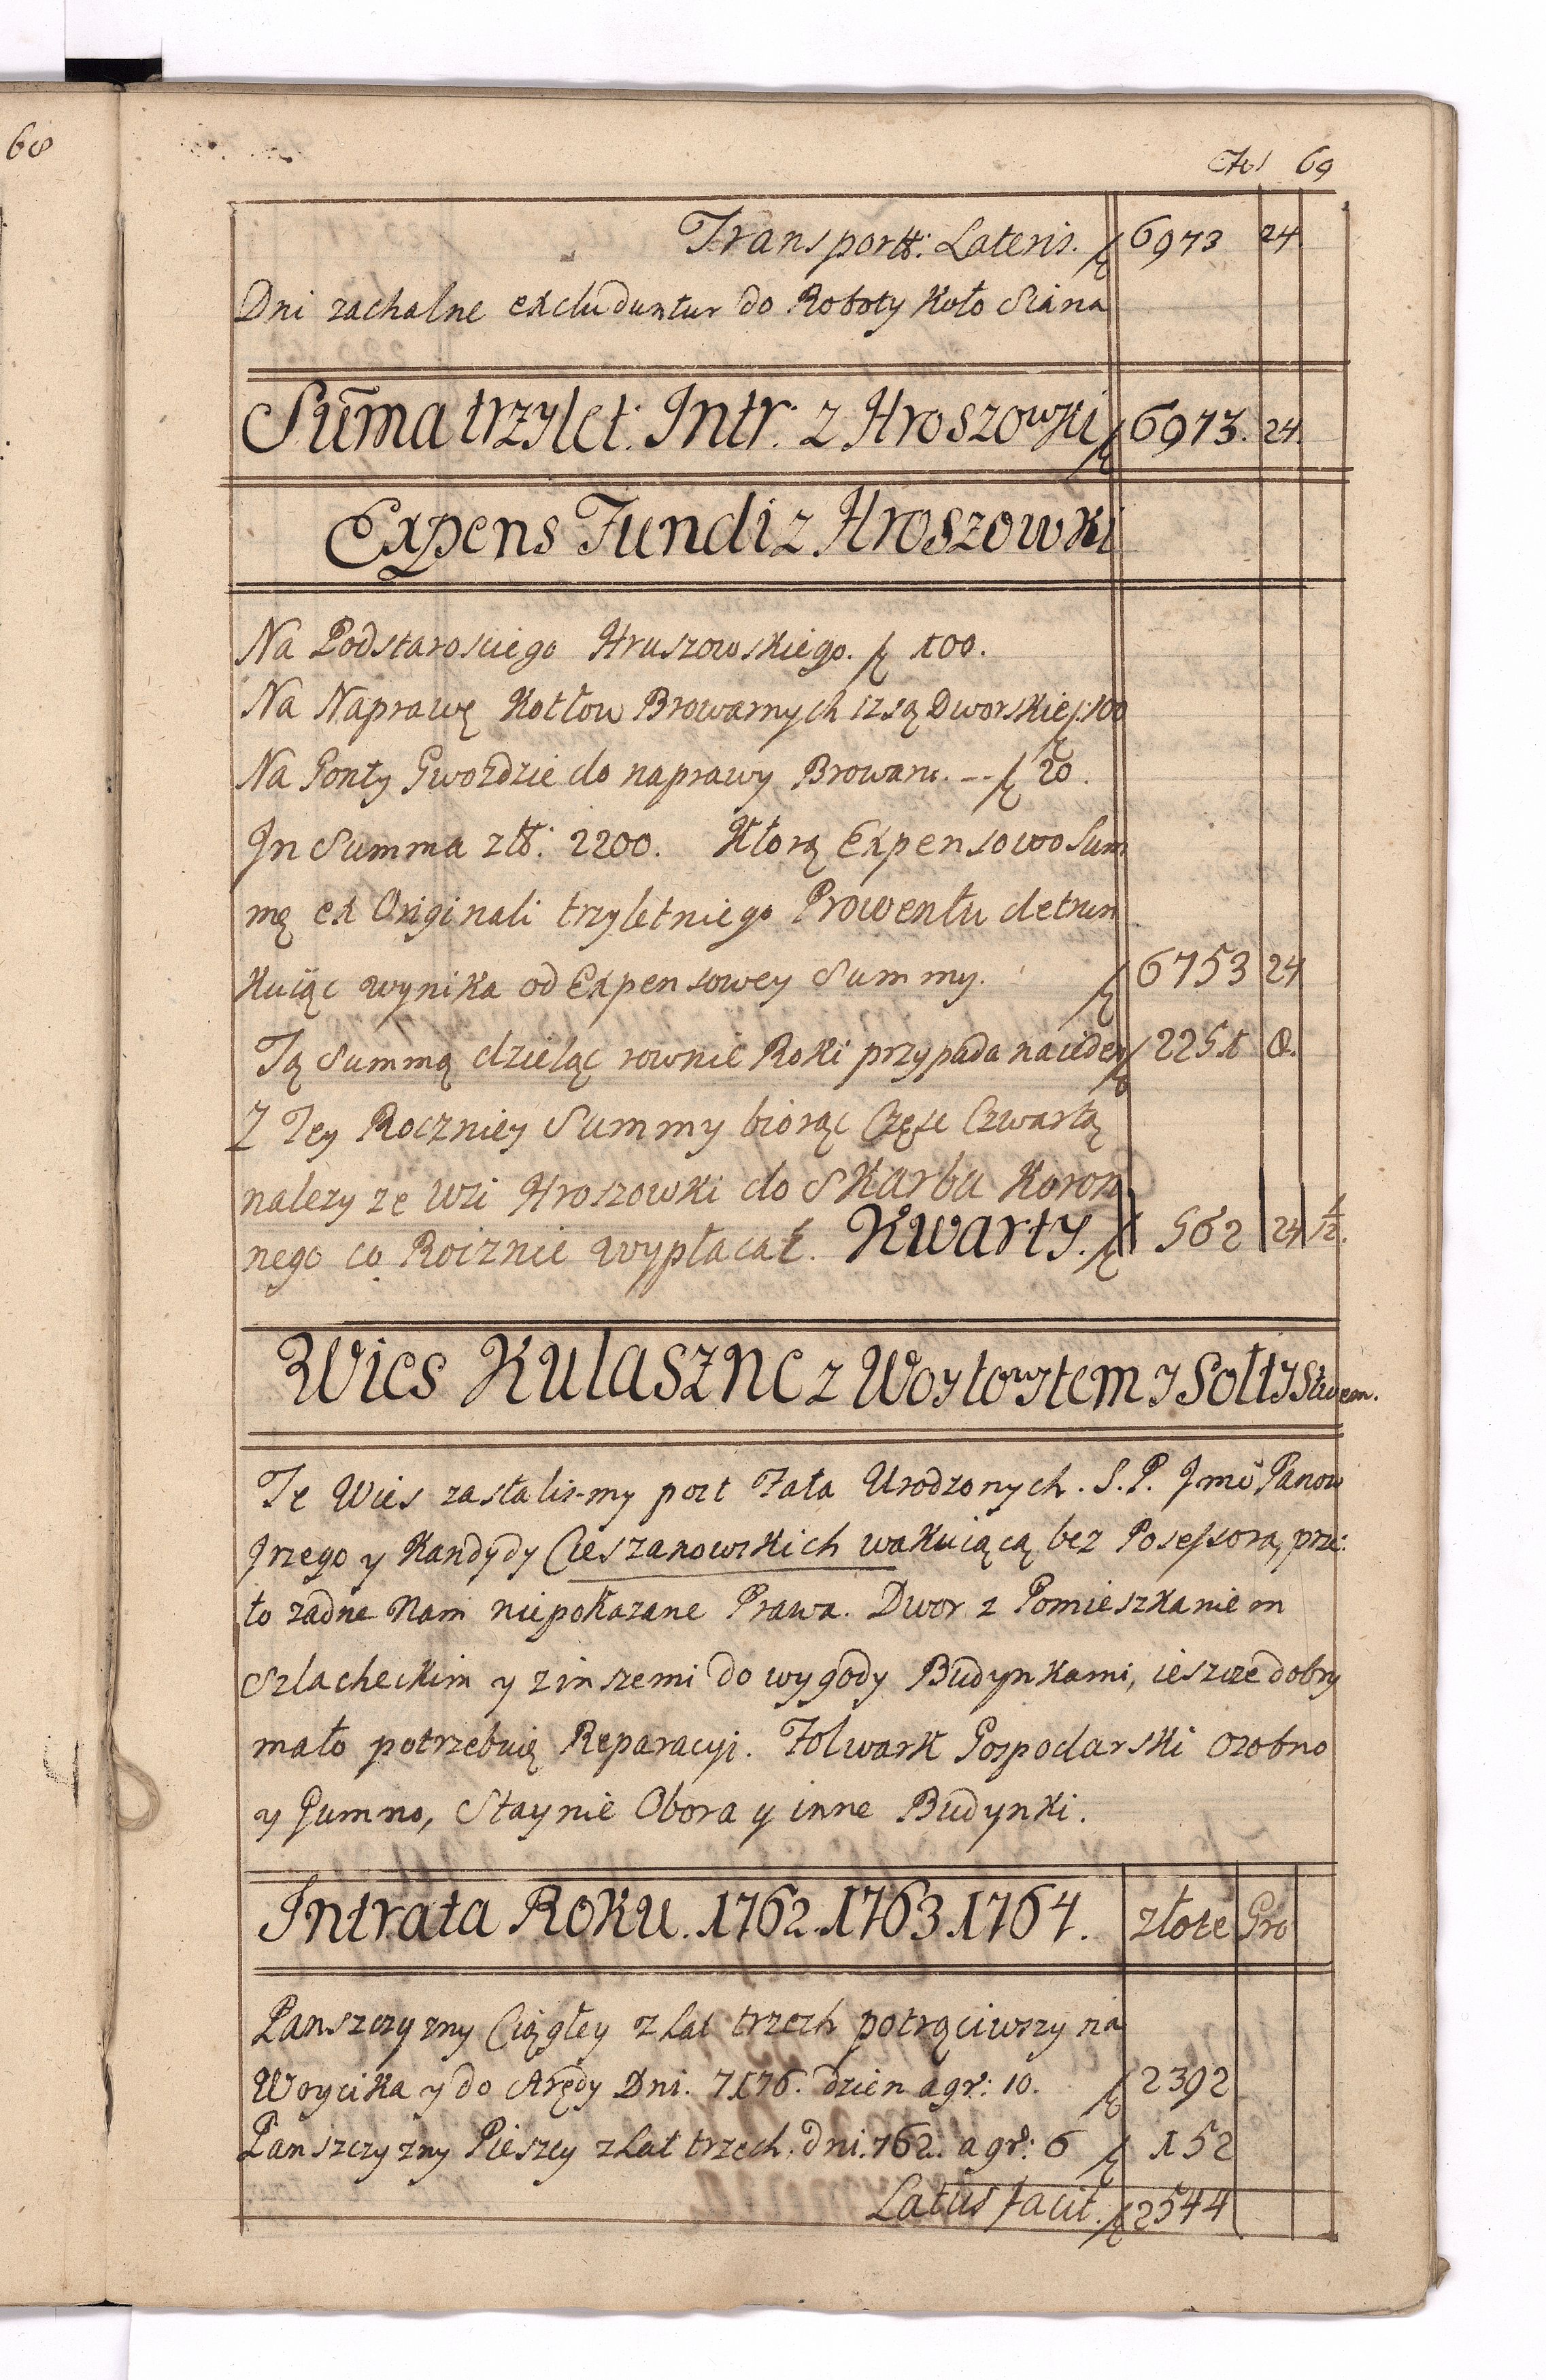 68
Fol 69
Transportt: Lateris. f 6973 24
Dni zachalne excluduntur do Roboty Koło Siana
Sum̄a trzylet: Intr: z Hroszowki f 6973. 24.
Expens Fundi z Hroszowki
Na Podstarosciego Hruszowskiego. f 100.
Na Naprawę Kotłow Browarnych Dworskiej: 100
Na Gonty Gwozdzie do naprawy Browaru. -- f 20.
In Summa złł: 2200. Ktorą Expensowo Sum
mę ex Originali trzyletniego Prowentu detrun
kuiąc wynika od Expensowey Summy. f 6753 24
Tą Summą dzieląc rownie Roki przypada na ieden f 2251 8.
Z Tey Roczniey Summy biorąc Częsc Czwartą
nalezy ze Wsi Hroszowki do Skarbu Koron
nego co Rocznie wypłacać. Kwarty. f 562 24 1/2.
Wies Kulaszne z Woytowstem y Soltystwem.
Te Wies zastalis-my post Fata Urodzonych. S.P. Jmć Panow
Jrzego y Kandydy Cieszanowskich wakuiącą bez Posessora, prze:
to zadne Nam niepokazane Prawa. Dwor z Pomieszkaniem
Szlacheckim y z inszemi do wygody Budynkami, ieszcze dobry
mało potrzebuię Reparacyi. Folwark Gospodarski osobno
y Gumno, Staynie Obora y inne Budynki.
Intrata Roku. 1762. 1763. 1764. złote Gro
Panszczyzny Ciągłey z Lat trzech potrąciwszy na
Woycika y do Arędy Dni. 7176. dzien a gr: 10. f 2392
Panszczyzny Pieszey z Lat trzech. dni. 762. a gr: 6 f 152
Latus facit. f 2544